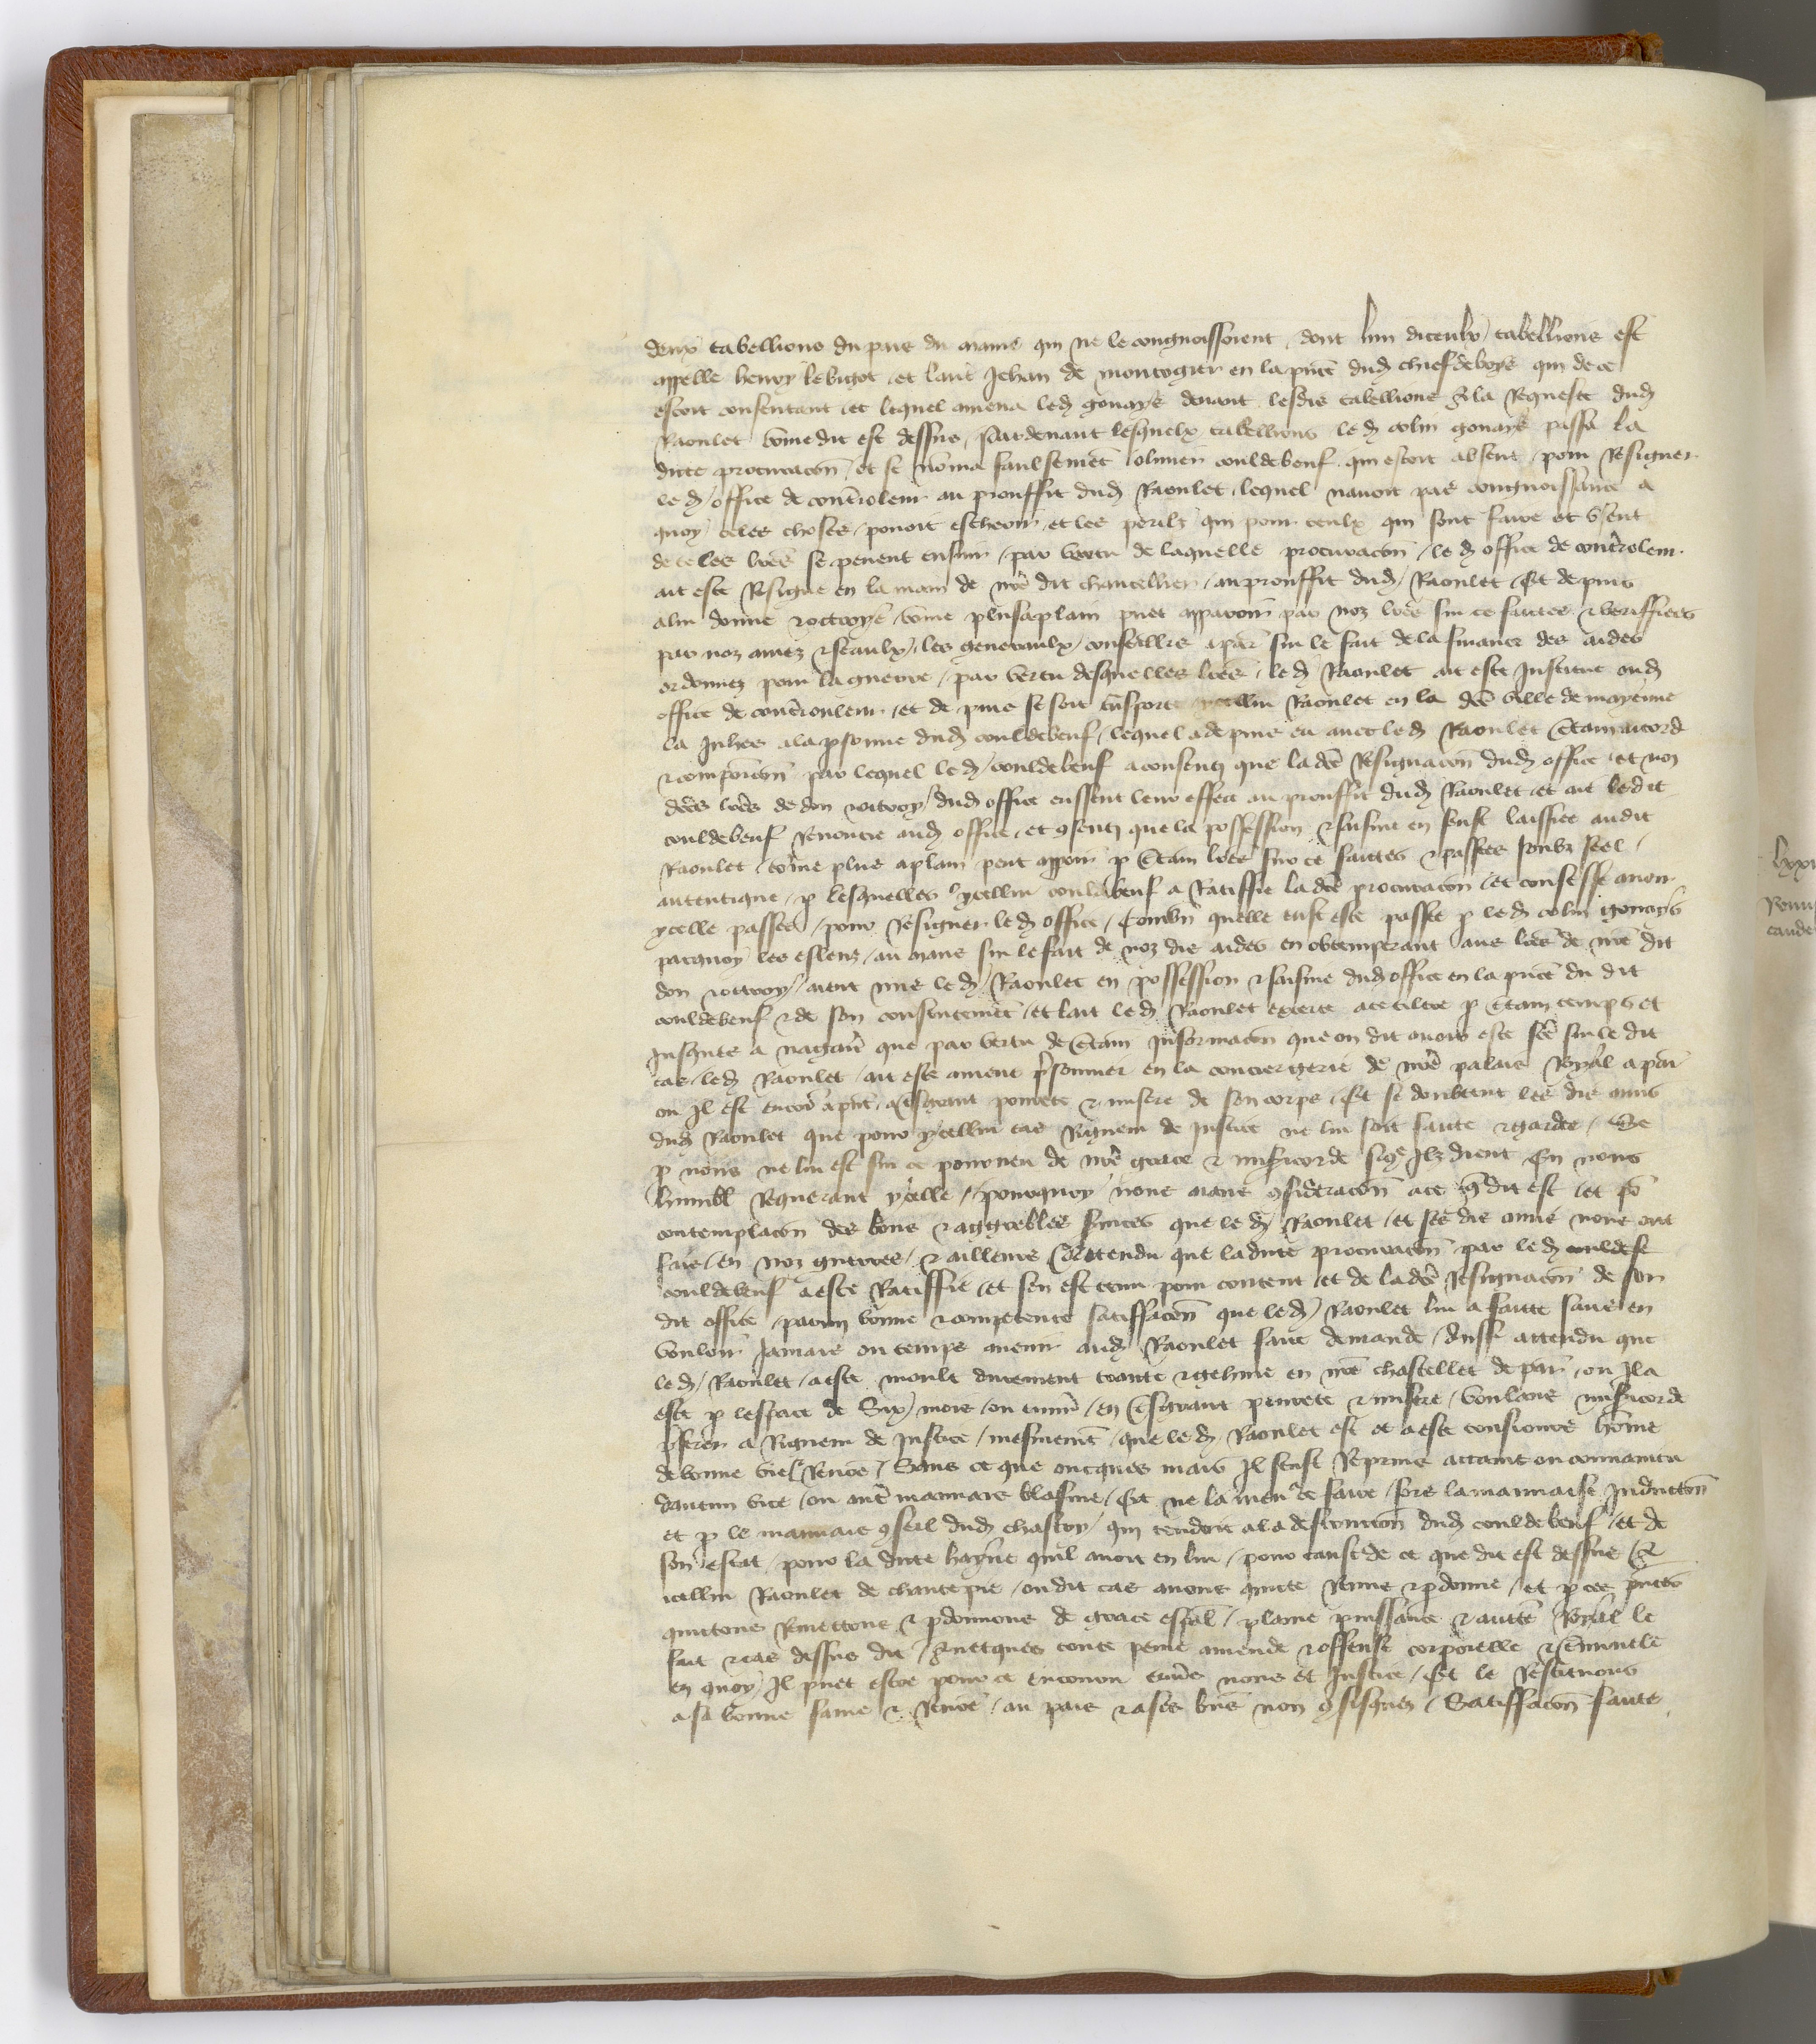 deux tabellions du pais du maine qui ne le congnoissoient dont lun diceulx tabellions est
appelle henry lebigot et laut Jehan de montogier en la pnce dud chiefdeboys qui de ce
estoit consentant et lequel amena led gonays devant lesdis tabellions a la Requeste dud
Raoulet cōme dit est dessus Pardevant lesquelx tabellions led colin gonays passa la
dicte procuracōn et se nōma faulsemēt oliuier couldebeuf qui estoit absent pour Resigner
led office de contrerolleur au prouffit dud Raoulet lequel nauoit pas congnoissance a
quoy teles choses pouoit escheoir et les perilz qui pour ceulx qui font faire et usent
de teles lrēs se peuent ensuir par vertu de laquelle procuracōn led office de contrerolleur
ait este Resigne en la main de nrē dit chancellier au prouffit dud Raoulet Et depuis
a lui donne et octroye cōme plus a plain puet apparoir par noz lrēs sur ce faictes et veriffiees
par noz amez et feaulx les generaulx conseilles a par sur le fait de la finance des aides
ordonnez pour la guerre par vertu desquelles lrēs led Raoulet ait este Institue oud
office de contrerouleur et depuis se soit trāsporte ycellui Raoulet en la dcē ville de mayenne
la Juhes a la psonne dud couldebeuf lequel a depuis eu auec led Raoulet Ctain acord
et composicōn par lequel led couldebeuf a consenti que la dcē Resignacōn dud office et noz
dcēs lrēs de don et octroy dud office eussent leur effect au prouffit dud Raoulet et ait ledit
couldebeuf Renoncie aud office et ɔsenti que la possession et saisine en feust laissiee audit
Raoulet cōme plus a plain peut apoir p Ctain lrēs sur ce faictes et passees soubz seel
autentique p lesquelles ycellui couldebeuf a Ratiffie la dcē procuracōn et confesse auoir
ycelle passee pour Resigner led office Combn quelle eust este passee p led colin gonays
parquoy les esleuz au mans sur le fait de noz dis aides en obtemperant aus lrēs de nrē dit
don et octroy aient mis led Raoulet en possession et saisine dud office en la pnce du dit
couldebeuf et de son consentemēt et lait led Raoulet exerce a ce tiltre p Ctain temps et
Jusques a nagaires que par vertu de Ctain Informacōn que on dit auoir este fcē sur le dit
cas led Raoulet ait este amene prisonnier en la conciergerie de nrē palais Royal a par
ou Il est encor a pnt a tresgrant pourete et misere de son corps Et se doubtent les dis amis
dud Raoulet que pour ycellui cas Rigueur de Justice ne lui soit faicte et gardee Se
p nous ne lui est sur ce pourueu de nrē grace et misericorde sicōe Ilz dient En nous
humbl Requerant ycelle pourquoy nous aians ɔsideracōn a ce q dit est et po
contemplacōn des bons et aggreables seruices que led Raoulet et ses dis amis nous ont
fais en noz guerres et ailleurs attendu que ladicte procuracōn par led couldese
couldebeuf a este Ratiffie et sen est tenu pour content et de la dcē Resignacōn de son
dit office parmi bonne et competente satiffacōn que led Raoulet lui a faicte sans en
vouloir Jamais ou temps auenir aud Raoulet faire demande Aussi attendu que
led Raoulet a este moult durement traicte et gehine en nrē chastellet de par ou Il a
este p lespace de Six mois ou enuirō en tresgrant pourete et misere voulans misericorde
pferer a Rigueur de Justice mesmemēt que led Raoulet est et a este tousiours hōme
de bonne vie et Renōe Sans ce que oncques mais Il feust Reprins attaint ou conuaincu
daucun vice ou autē mauuais blasme Et ne la meu de faire fors la mauuaise Inductōn
et p le mauuais ɔseil dud chastoy qui tendoit a la destructiōn dud couldebeuf et de
son estat pour la dicte hayne quil auoit en lui pour cause de ce que dit est dessus A
icellui Raoulet de chantepie ou dit cas auons quicte Remis et pdonne et p ces pntes
quittons Remettons et pdonnons de grace espāl plaine puissance et auctē Royal le
fait et cas dessus dit auecques toute peine amende et offense corporelle et Criminele
en quoy Il puet estre pour ce encouru enurs nous et Justice Et le Restituons
a sa bonne fame et Renōe au pais et a ses biēs non ɔfisquez Satiffacōn faicte